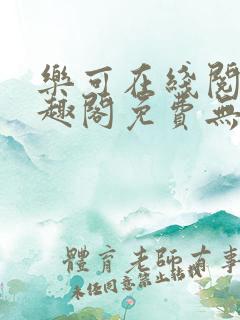 樂可在綫閱
趣閣免費無
體育老師有事
未任同意禁止轉載